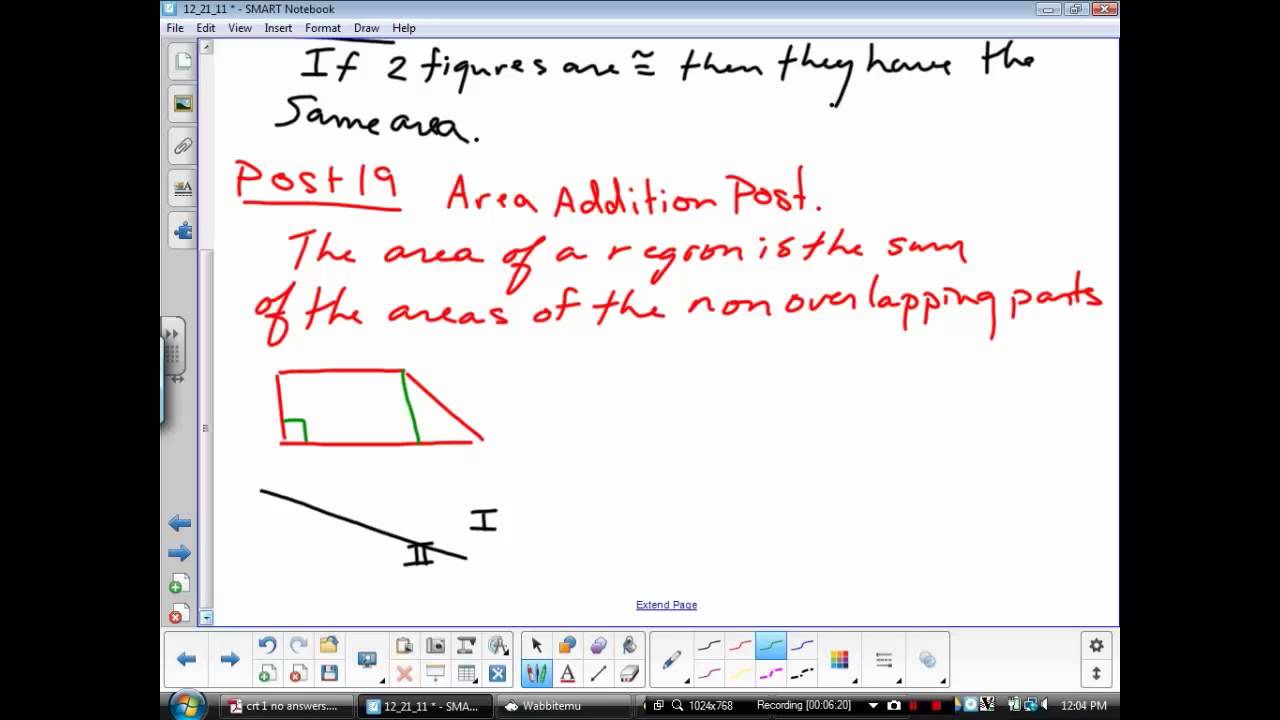 12_21_11 * - SMART Notebook
File Edit View Insert Format Draw Help
If 2 figures are ≅ then they have the
same area.
Post 19 Area Addition Post.
The area of a region is the sum
of the areas of the non overlapping parts
I
II
Extend Page
crt 1 no answers....
12_21_11 * - SMA...
Wabbitemu
1024x768
Recording [00:06:20]
12:04 PM